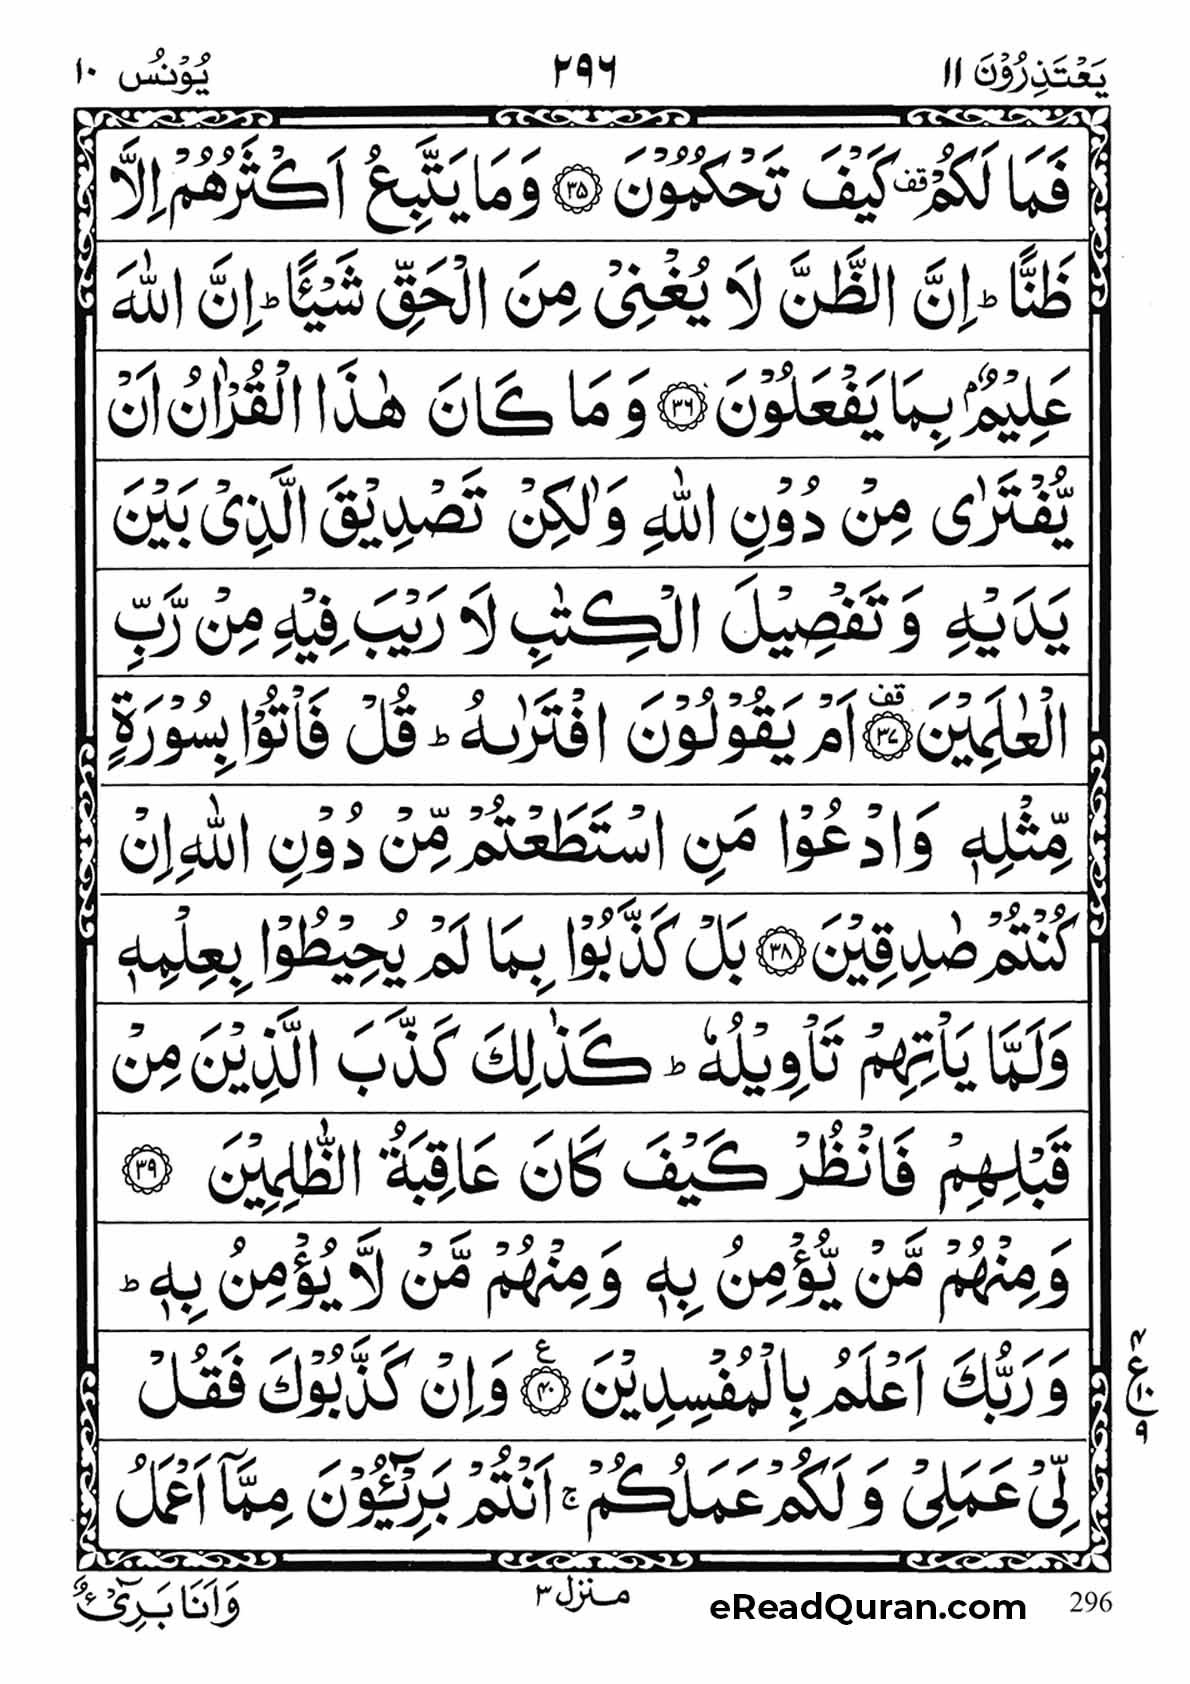 يَعْتَذِرُوْنَ ١١ ٢٩٦ يُوْنُس ١٠
فَمَا لَكُمْ قف كَيْفَ تَحْكُمُوْنَ ﴿٣٥﴾ وَمَا يَتَّبِعُ اَكْثَرُهُمْ اِلَّا
ظَنًّا ؕ اِنَّ الظَّنَّ لَا يُغْنِىْ مِنَ الْحَقِّ شَيْـًٔا ؕ اِنَّ اللّٰهَ
عَلِيْمٌۢ بِمَا يَفْعَلُوْنَ ﴿٣٦﴾ وَمَا كَانَ هٰذَا الْقُرْاٰنُ اَنْ
يُّفْتَرٰى مِنْ دُوْنِ اللّٰهِ وَلٰكِنْ تَصْدِيْقَ الَّذِىْ بَيْنَ
يَدَيْهِ وَتَفْصِيْلَ الْكِتٰبِ لَا رَيْبَ فِيْهِ مِنْ رَّبِّ
الْعٰلَمِيْنَ قف ﴿٣٧﴾ اَمْ يَقُوْلُوْنَ افْتَرٰىهُ ؕ قُلْ فَاْتُوْا بِسُوْرَةٍ
مِّثْلِهٖ وَادْعُوْا مَنِ اسْتَطَعْتُمْ مِّنْ دُوْنِ اللّٰهِ اِنْ
كُنْتُمْ صٰدِقِيْنَ ﴿٣٨﴾ بَلْ كَذَّبُوْا بِمَا لَمْ يُحِيْطُوْا بِعِلْمِهٖ
وَلَمَّا يَاْتِهِمْ تَاْوِيْلُهٗ ؕ كَذٰلِكَ كَذَّبَ الَّذِيْنَ مِنْ
قَبْلِهِمْ فَانْظُرْ كَيْفَ كَانَ عَاقِبَةُ الظّٰلِمِيْنَ ﴿٣٩﴾
وَمِنْهُمْ مَّنْ يُّؤْمِنُ بِهٖ وَمِنْهُمْ مَّنْ لَّا يُؤْمِنُ بِهٖ ؕ
وَرَبُّكَ اَعْلَمُ بِالْمُفْسِدِيْنَ ع ﴿٤٠﴾ وَاِنْ كَذَّبُوْكَ فَقُلْ
٤ ع ١٠ ٩
لِّىْ عَمَلِىْ وَلَكُمْ عَمَلُكُمْ ۚ اَنْتُمْ بَرِيْٓـُٔوْنَ مِمَّاۤ اَعْمَلُ
وَاَنَا بَرِىْٓءٌ منزل ٣ eReadQuran.com 296